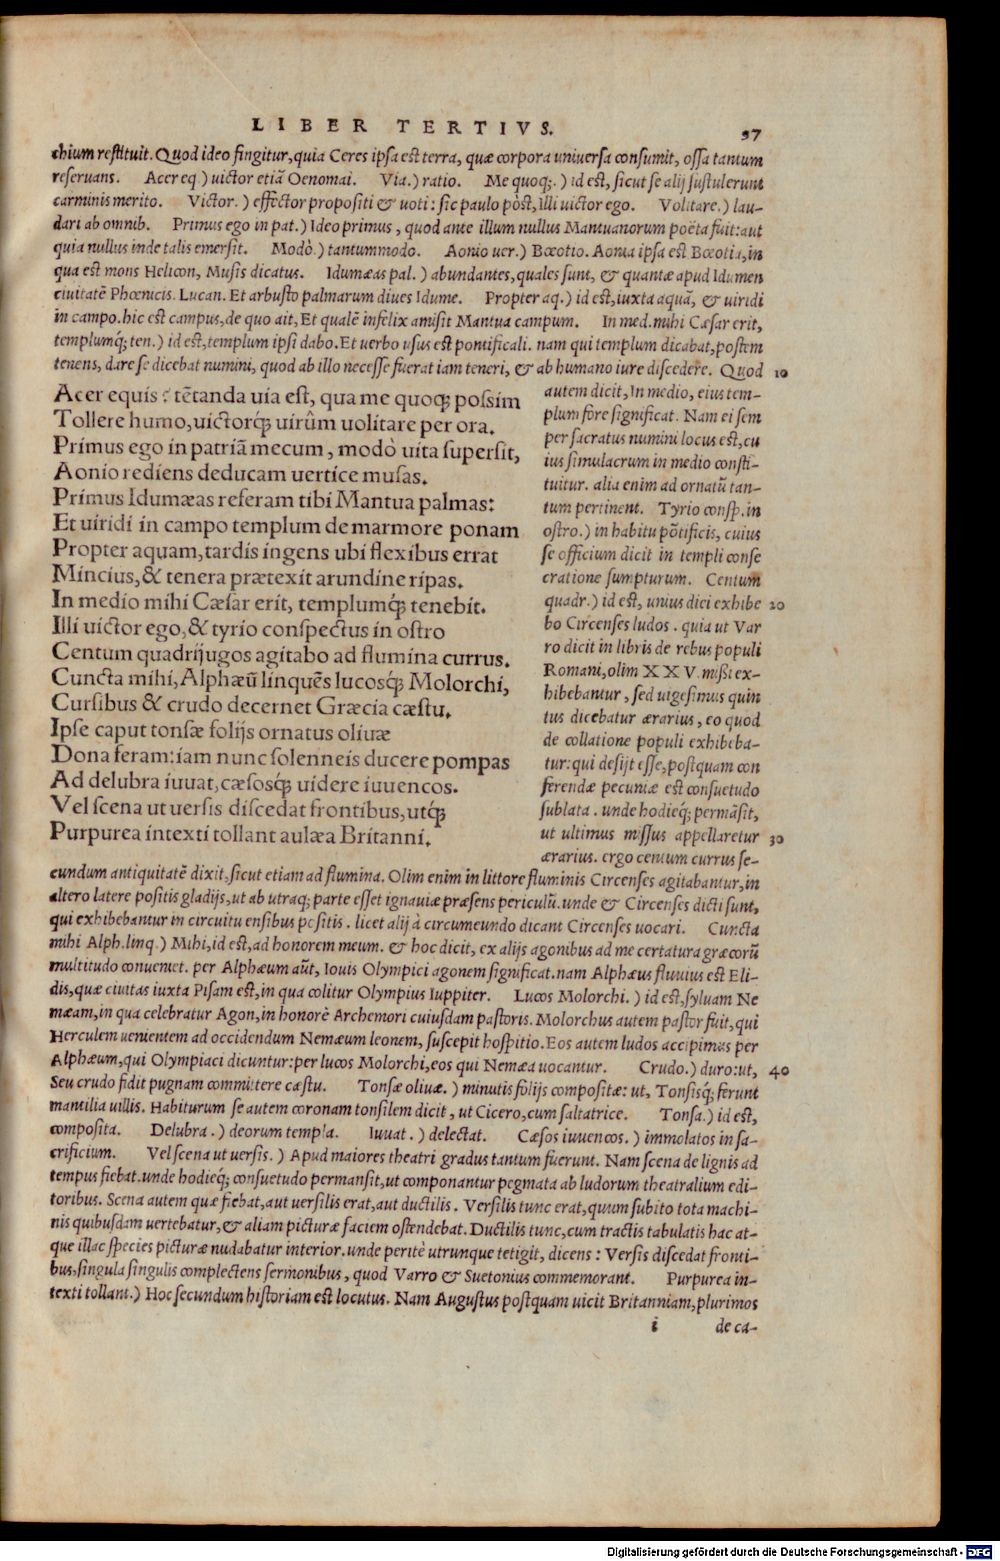 LIBER TERTIVS. 97
chium restituit. Quod ideo fingitur, quia Ceres ipsa est terra, quæ corpora uniuersa consumit, ossa tantum
reseruans. Acer eq.) uictor etiã Oenomai. Via.) ratio. Me quoq;.) id est, sicut se alij sustulerunt
carminis merito. Victor.) effector propositi & uoti: sic paulo pòst, illi uictor ego. Volitare.) lau-
dari ab omnib. Primus ego in pat.) Ideo primus, quod ante illum nullus Mantuanorum poëta fuit: aut
quia nullus inde talis emersit. Modò.) tantummodo. Aonio uer.) Bœotio. Aonia ipsa est Bœotia, in
qua est mons Helicon, Musis dicatus. Idumæas pal.) abundantes, quales sunt, & quantæ apud Idumen
ciuitatē Phœnicis. Lucan. Et arbusto palmarum diues Idume. Propter aq.) id est, iuxta aquã, & uiridi
in campo. hic est campus, de quo ait, Et qualē infelix amisit Mantua campum. In med. mihi Cæsar erit,
templumq́; ten.) id est, templum ipsi dabo. Et uerbo usus est pontificali. nam qui templum dicabat, postem
tenens, dare se dicebat numini, quod ab illo necesse fuerat iam teneri, & ab humano iure discedere. Quod 10
Acer equis : tētanda uia est, qua me quoq; possim
Tollere humo, uictorq́; uirûm uolitare per ora.
Primus ego in patriã mecum, modò uita supersit,
Aonio rediens deducam uertice musas.
Primus Idumæas referam tibi Mantua palmas:
Et uiridi in campo templum de marmore ponam
Propter aquam, tardis ingens ubi flexibus errat
Mincius, & tenera prætexit arundine ripas.
In medio mihi Cæsar erit, templumq́; tenebit.
Illi uictor ego, & tyrio conspectus in ostro
Centum quadrijugos agitabo ad flumina currus.
Cuncta mihi, Alphæũ linquēs lucosq́; Molorchi,
Cursibus & crudo decernet Græcia cæstu.
Ipse caput tonsæ folijs ornatus oliuæ
Dona feram: iam nunc solenneis ducere pompas
Ad delubra iuuat, cæsosq́; uidere iuuencos.
Vel scena ut uersis discedat frontibus, utq́;
Purpurea intexti tollant aulæa Britanni.
autem dicit, In medio, eius tem-
plum fore significat. Nam ei sem
per sacratus numini locus est, cu
ius simulacrum in medio consti-
tuitur. alia enim ad ornatũ tan-
tum pertinent. Tyrio consp. in
ostro.) in habitu põtificis, cuius
se officium dicit in templi conse
cratione sumpturum. Centum
quadr.) id est, unius diei exhibe 20
bo Circenses ludos. quia ut Var
ro dicit in libris de rebus populi
Romani, olim XXV. missi ex-
hibebantur, sed uigesimus quin
tus dicebatur ærarius, eo quod
de collatione populi exhibeba-
tur: qui desijt esse, postquam con
ferendæ pecuniæ est consuetudo
sublata. unde hodieq́; permãsit,
ut ultimus missus appellaretur 30
ærarius. ergo centum currus se-
cundum antiquitatē dixit, sicut etiam ad flumina. Olim enim in littore fluminis Circenses agitabantur, in
altero latere positis gladijs, ut ab utraq; parte esset ignauiæ præsens periculũ. unde & Circenses dicti sunt,
qui exhibebantur in circuitu ensibus positis. licet alij à circumeundo dicant Circenses uocari. Cuncta
mihi Alph. linq.) Mihi, id est, ad honorem meum. & hoc dicit, ex alijs agonibus ad me certatura græcorũ
multitudo conueniet. per Alphæum aũt, Iouis Olympici agonem significat. nam Alphæus fluuius est Eli-
dis, quæ ciuitas iuxta Pisam est, in qua colitur Olympius Iuppiter. Lucos Molorchi.) id est, syluam Ne
mæam, in qua celebratur Agon, in honorē Archemori cuiusdam pastoris. Molorchus autem pastor fuit, qui
Herculem uenientem ad occidendum Nemæum leonem, suscepit hospitio. Eos autem ludos accipimus per
Alphæum, qui Olympiaci dicuntur: per lucos Molorchi, eos qui Nemæa uocantur. Crudo.) duro: ut, 40
Seu crudo fidit pugnam committere cæstu. Tonsæ oliuæ.) minutis folijs compositæ: ut, Tonsisq́; ferunt
mantilia uillis. Habiturum se autem coronam tonsilem dicit, ut Cicero, cum saltatrice. Tonsa.) id est,
composita. Delubra.) deorum templa. Iuuat.) delectat. Cæsos iuuencos.) immolatos in sa-
crificium. Vel scena ut uersis.) Apud maiores theatri gradus tantum fuerunt. Nam scena de lignis ad
tempus fiebat. unde hodieq́; consuetudo permansit, ut componantur pegmata ab ludorum theatralium edi-
toribus. Scena autem quæ fiebat, aut uersilis erat, aut ductilis. Versilis tunc erat, quum subito tota machi-
nis quibusdam uertebatur, & aliam picturæ faciem ostendebat. Ductilis tunc, cum tractis tabulatis hac at-
que illac species picturæ nudabatur interior. unde peritè utrunque tetigit, dicens: Versis discedat fronti-
bus, singula singulis complectens sermonibus, quod Varro & Suetonius commemorant. Purpurea in-
texti tollant.) Hoc secundum historiam est locutus. Nam Augustus postquam uicit Britanniam, plurimos
i de ca-
Digitalisierung gefördert durch die Deutsche Forschungsgemeinschaft - DFG